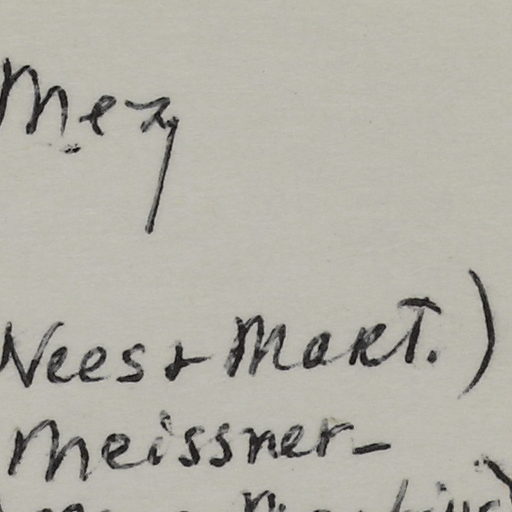 Mez
Nees + Mart.)
Meissner -